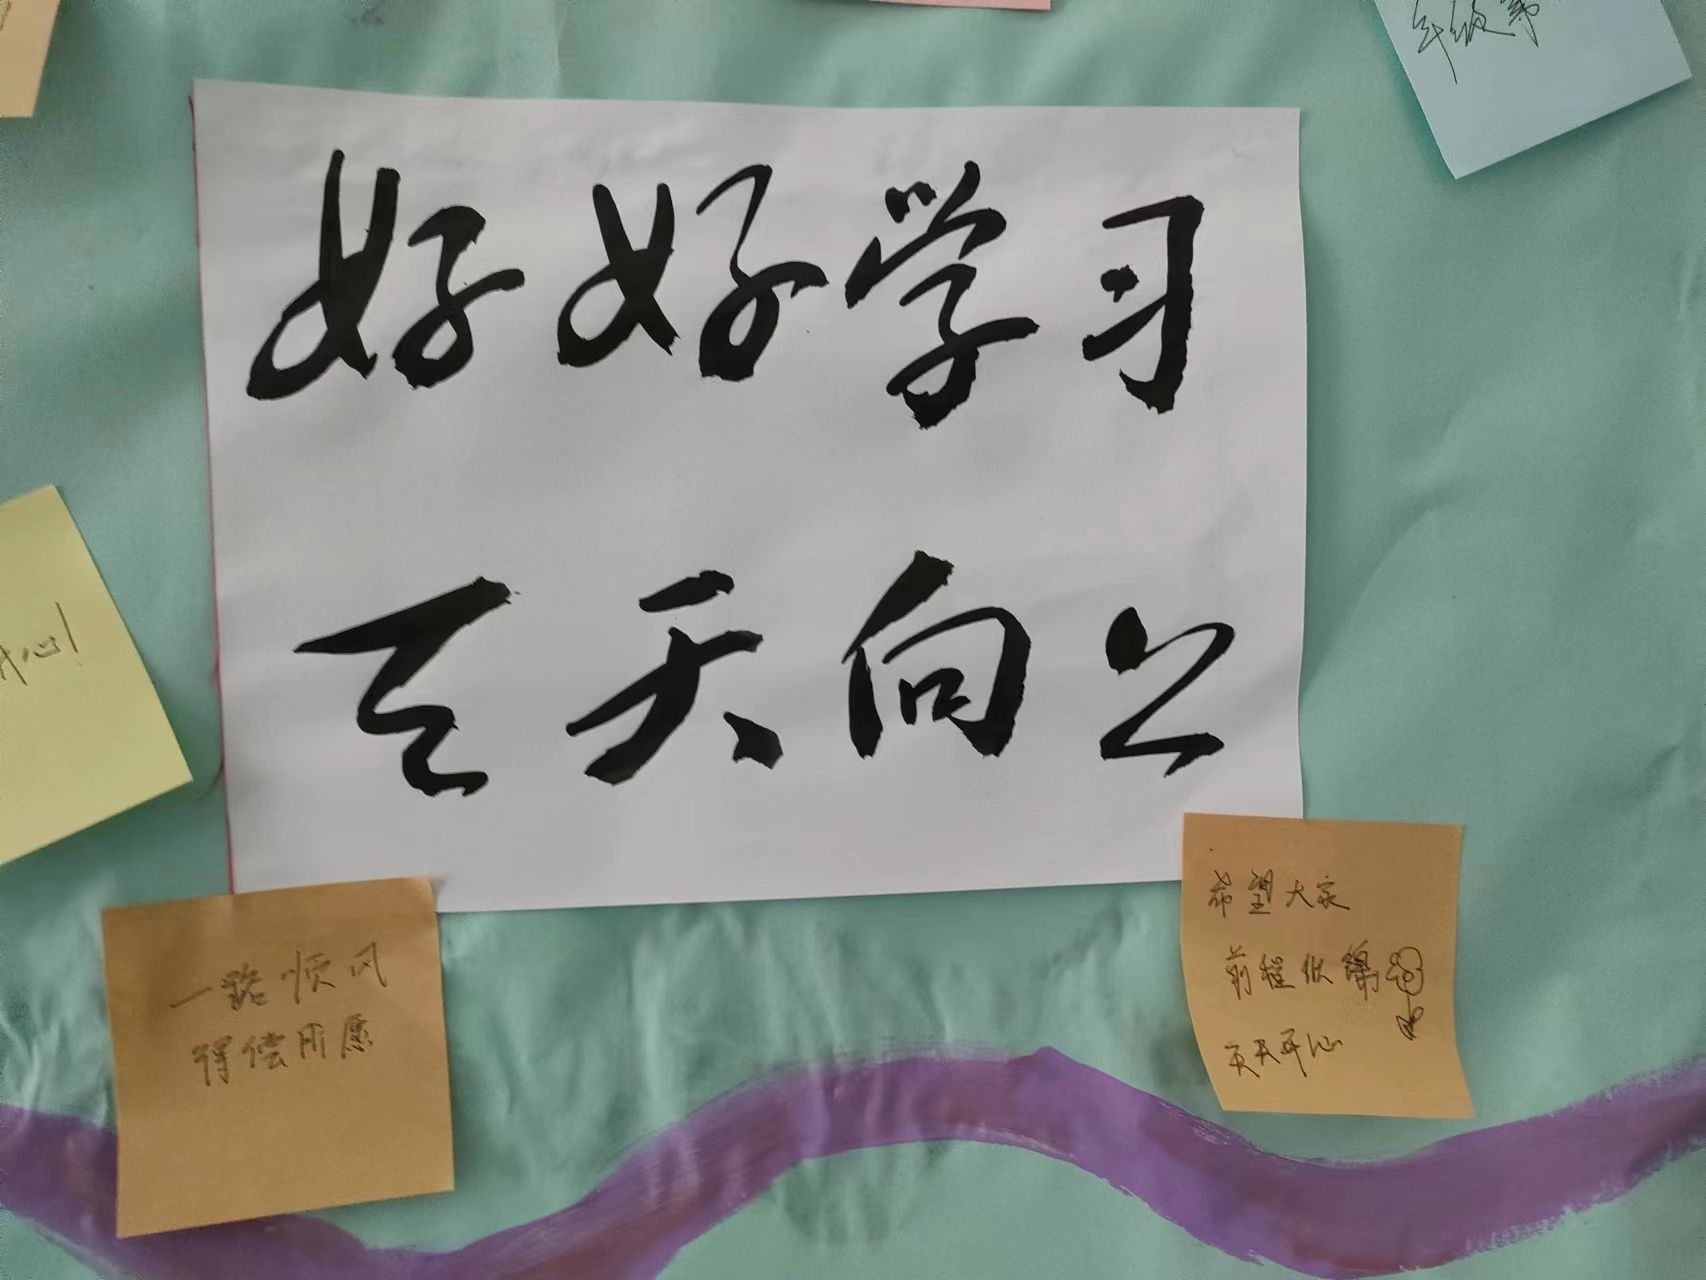 年级第
好好学习
天天向上
开心!
一路顺风
得偿所愿
希望大家
前程似锦
天天开心